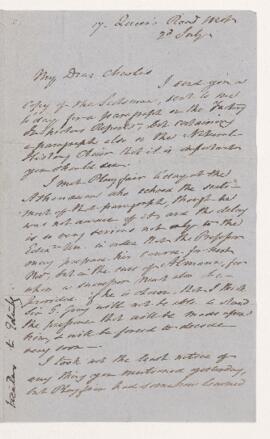 17. Queen's Road West
2d July.
My Dear Charles
I send you a
Copy of the Scotsman, sent to me
to day for a paragraph on the Factory
Inspectors Reports, but containing
a paragraph also on the Natural
History Chair that it is important
you should see.
I met Playfair to day at the
Athenaeum who echoed the senti-
ment of the paragraph, though he
was not aware of it, and the delay
is a very serious not only to the
in order that the Professor
may prepare his course for
but in the case of Allman, for
whom a successor must also be
provided, if he is chosen. But I think
Sir G. Grey will not be able to stand
the pressure that will be made upon
him, & will be forced to decide
very soon —
I took not the least notice of
any thing you mentioned yesterday,
but Playfair had somehow learned